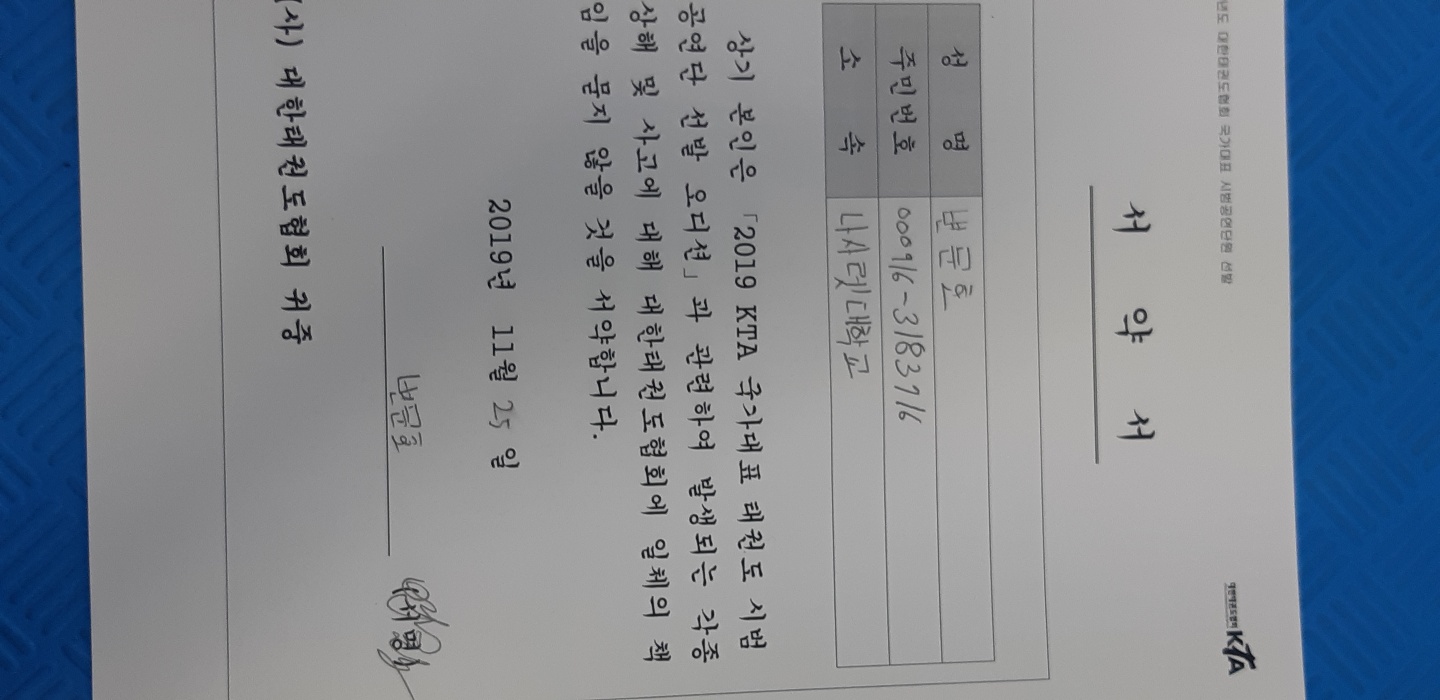 년도 대한태권도협회 국가대표 시범공연단원 선발
대한태권도협회 KTA
서 약 서
성 명 변문호
주민번호 000916-3183716
소 속 나사렛대학교
상기 본인은 「2019 KTA 국가대표 태권도 시범
공연단 선발 오디션」과 관련하여 발생되는 각종
상해 및 사고에 대해 대한태권도협회에 일체의 책
임을 묻지 않을 것을 서약합니다.
2019년 11월 25일
변문호 서명
사) 대한태권도협회 귀중